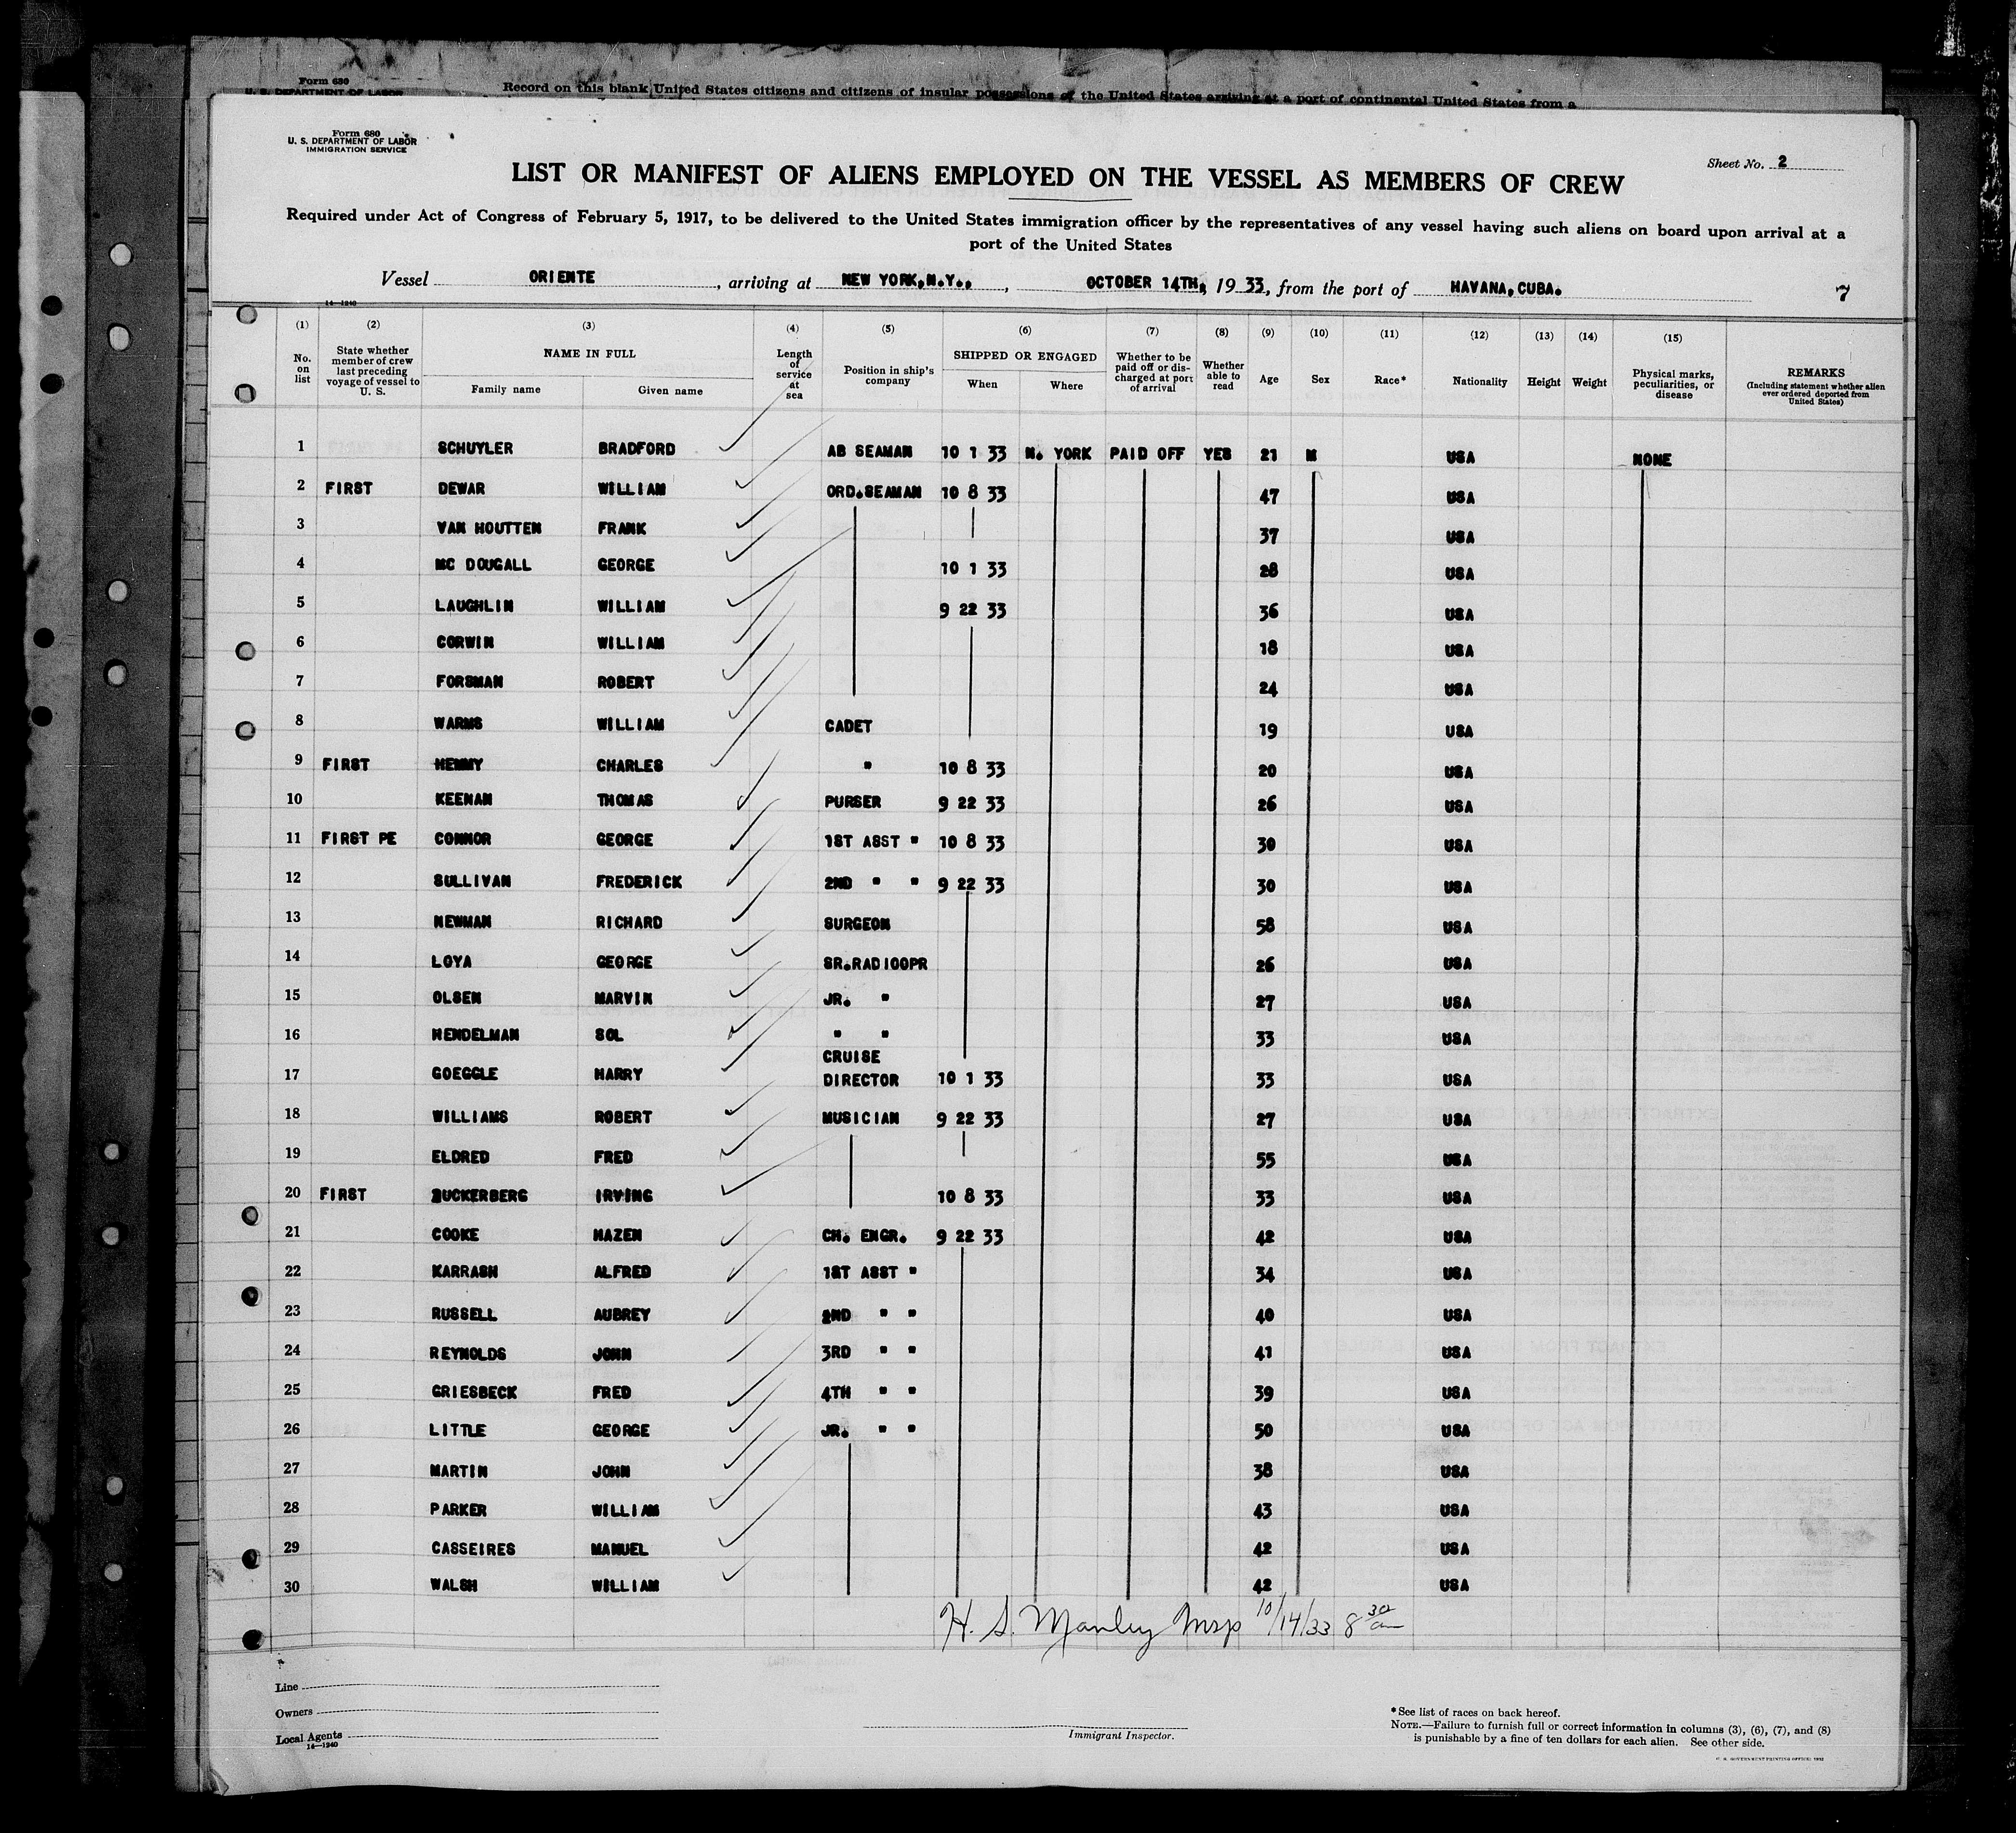 Form 680
U. S. DEPARTMENT OF LABOR
Record on this blank United States citizens and citizens of insular possessions of the United States arriving at a port of continental United States from a
Form 680
U. S. DEPARTMENT OF LABOR
IMMIGRATION SERVICE
Sheet No. 2
LIST OR MANIFEST OF ALIENS EMPLOYED ON THE VESSEL AS MEMBERS OF CREW
Required under Act of Congress of February 5, 1917, to be delivered to the United States immigration officer by the representatives of any vessel having such aliens on board upon arrival at a
port of the United States
Vessel ORIENTE, arriving at NEW YORK,N.Y., , OCTOBER 14TH, 1933, from the port of HAVANA,CUBA.
7
14—1240
(1) (2) (3) (4) (5) (6) (7) (8) (9) (10) (11) (12) (13) (14) (15)
No. on list State whether member of crew last preceding voyage of vessel to U. S. NAME IN FULL Family name Given name Length of service at sea Position in ship's company SHIPPED OR ENGAGED When Where Whether to be paid off or discharged at port of arrival Whether able to read Age Sex Race* Nationality Height Weight Physical marks, peculiarities, or disease REMARKS (Including statement whether alien ever ordered deported from United States)
1 SCHUYLER BRADFORD AB SEAMAN 10 1 33 N. YORK PAID OFF YES 21 M USA NONE
2 FIRST DEWAR WILLIAM ORD.SEAMAN 10 8 33 47 USA
3 VAN HOUTTEN FRANK 37 USA
4 MC DOUGALL GEORGE 10 1 33 28 USA
5 LAUGHLIN WILLIAM 9 22 33 36 USA
6 CORWIN WILLIAM 18 USA
7 FORSMAN ROBERT 24 USA
8 WARMS WILLIAM CADET 19 USA
9 FIRST CHARLES " 10 8 33 20 USA
10 KEENAN THOMAS PURSER 9 22 33 26 USA
11 FIRST PE CONNOR GEORGE 1ST ASST " 10 8 33 30 USA
12 SULLIVAN FREDERICK 2ND " " 9 22 33 30 USA
13 NEWMAN RICHARD SURGEON 58 USA
14 LOYA GEORGE SR.RADIOOPR 26 USA
15 OLSEN MARVIN JR. " 27 USA
16 HENDELMAN SOL " " 33 USA
17 GOEGGLE HARRY CRUISE DIRECTOR 10 1 33 33 USA
18 WILLIAMS ROBERT MUSICIAN 9 22 33 27 USA
19 ELDRED FRED 55 USA
20 FIRST ZUCKERBERG IRVING 10 8 33 33 USA
21 COOKE HAZEN CH. ENGR. 9 22 33 42 USA
22 KARRASH ALFRED 1ST ASST " 34 USA
23 RUSSELL AUBREY 2ND " " 40 USA
24 REYNOLDS JOHN 3RD " " 41 USA
25 GRIESBECK FRED 4TH " " 39 USA
26 LITTLE GEORGE JR. " " 50 USA
27 MARTIN JOHN 38 USA
28 PARKER WILLIAM 43 USA
29 CASSEIRES MANUEL 42 USA
30 WALSH WILLIAM 42 USA
H. S. Manley Insp 10/14/33 8 30 am
Line
Owners
Local Agents
14—1240
Immigrant Inspector.
*See list of races on back hereof.
NOTE.—Failure to furnish full or correct information in columns (3), (6), (7), and (8)
is punishable by a fine of ten dollars for each alien. See other side.
U. S. GOVERNMENT PRINTING OFFICE: 1932